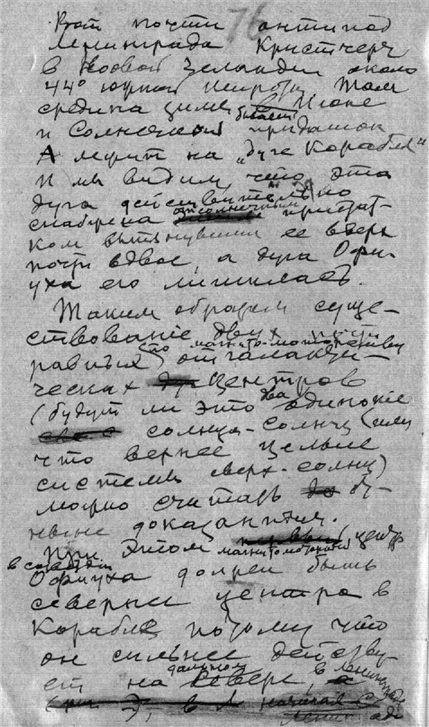 76
Вот почти антипод
Ленинграда Кристчерч
в Новой Зеландии около
44° южной широты. Там
средина зимы бывает в Июне
и Солнечный придаток
А лежит на „дуге Корабля"
И мы видим, что эта
дуга действительно
снабжена солнечным придат-
ком вытянувшим ее вверх
почти вдвое, а дуга Офи-
уха его лишилась.
Таким образом суще-
ствование двух почти
равных по магнито-моторному
отгалакти-
ческих центров
(будут ли это два одинокие
солнца-солнц (или
что вернее целые
системы сверх-солнц)
можно считать
ныне доказанным.
При этом центр
магнитоматорный
в созвездии
Офиуха должен быть
северный центра в
Корабле потому что
он сильнее действу-
ет на дальнем Севере в Ленинграде